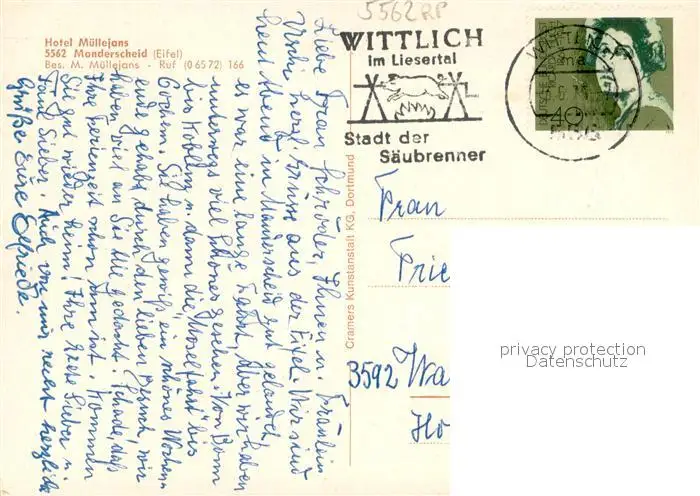 5562 RP
Hotel Müllejans
5562 Manderscheid (Eifel)
Bes. M. Müllejans - Ruf (0 65 72) 166
WITTLICH
im Liesertal
Stadt der
Säubrenner
40
Cramers Kunstanstalt KG, Dortmund
Liebe Frau Schröder, Ihnen u. Fräulein
Uschi herzl. Grüße aus der Eifel. Wir sind
heut Abend in Manderscheid gut gelandet,
es war eine lange Fahrt, aber wir haben
unterwegs viel Schönes gesehen. Von Bonn
bis Koblenz u. dann die "Moselfahrt" bis
Cochem. Sie haben gewiß ein schönes Wochen-
ende gehabt durch den lieben Besuch, wir
haben viel an Sie alle gedacht. Schade, daß
Ihre Ferienzeit schon um ist. Kommen
Sie gut wieder heim! Ihre Grete Sieber u.
Fam. Sieber. Auch von mir recht herzliche
Grüße Eure Elfriede.
Frau
Frie
3592 Wa
Ho
privacy protection
Datenschutz